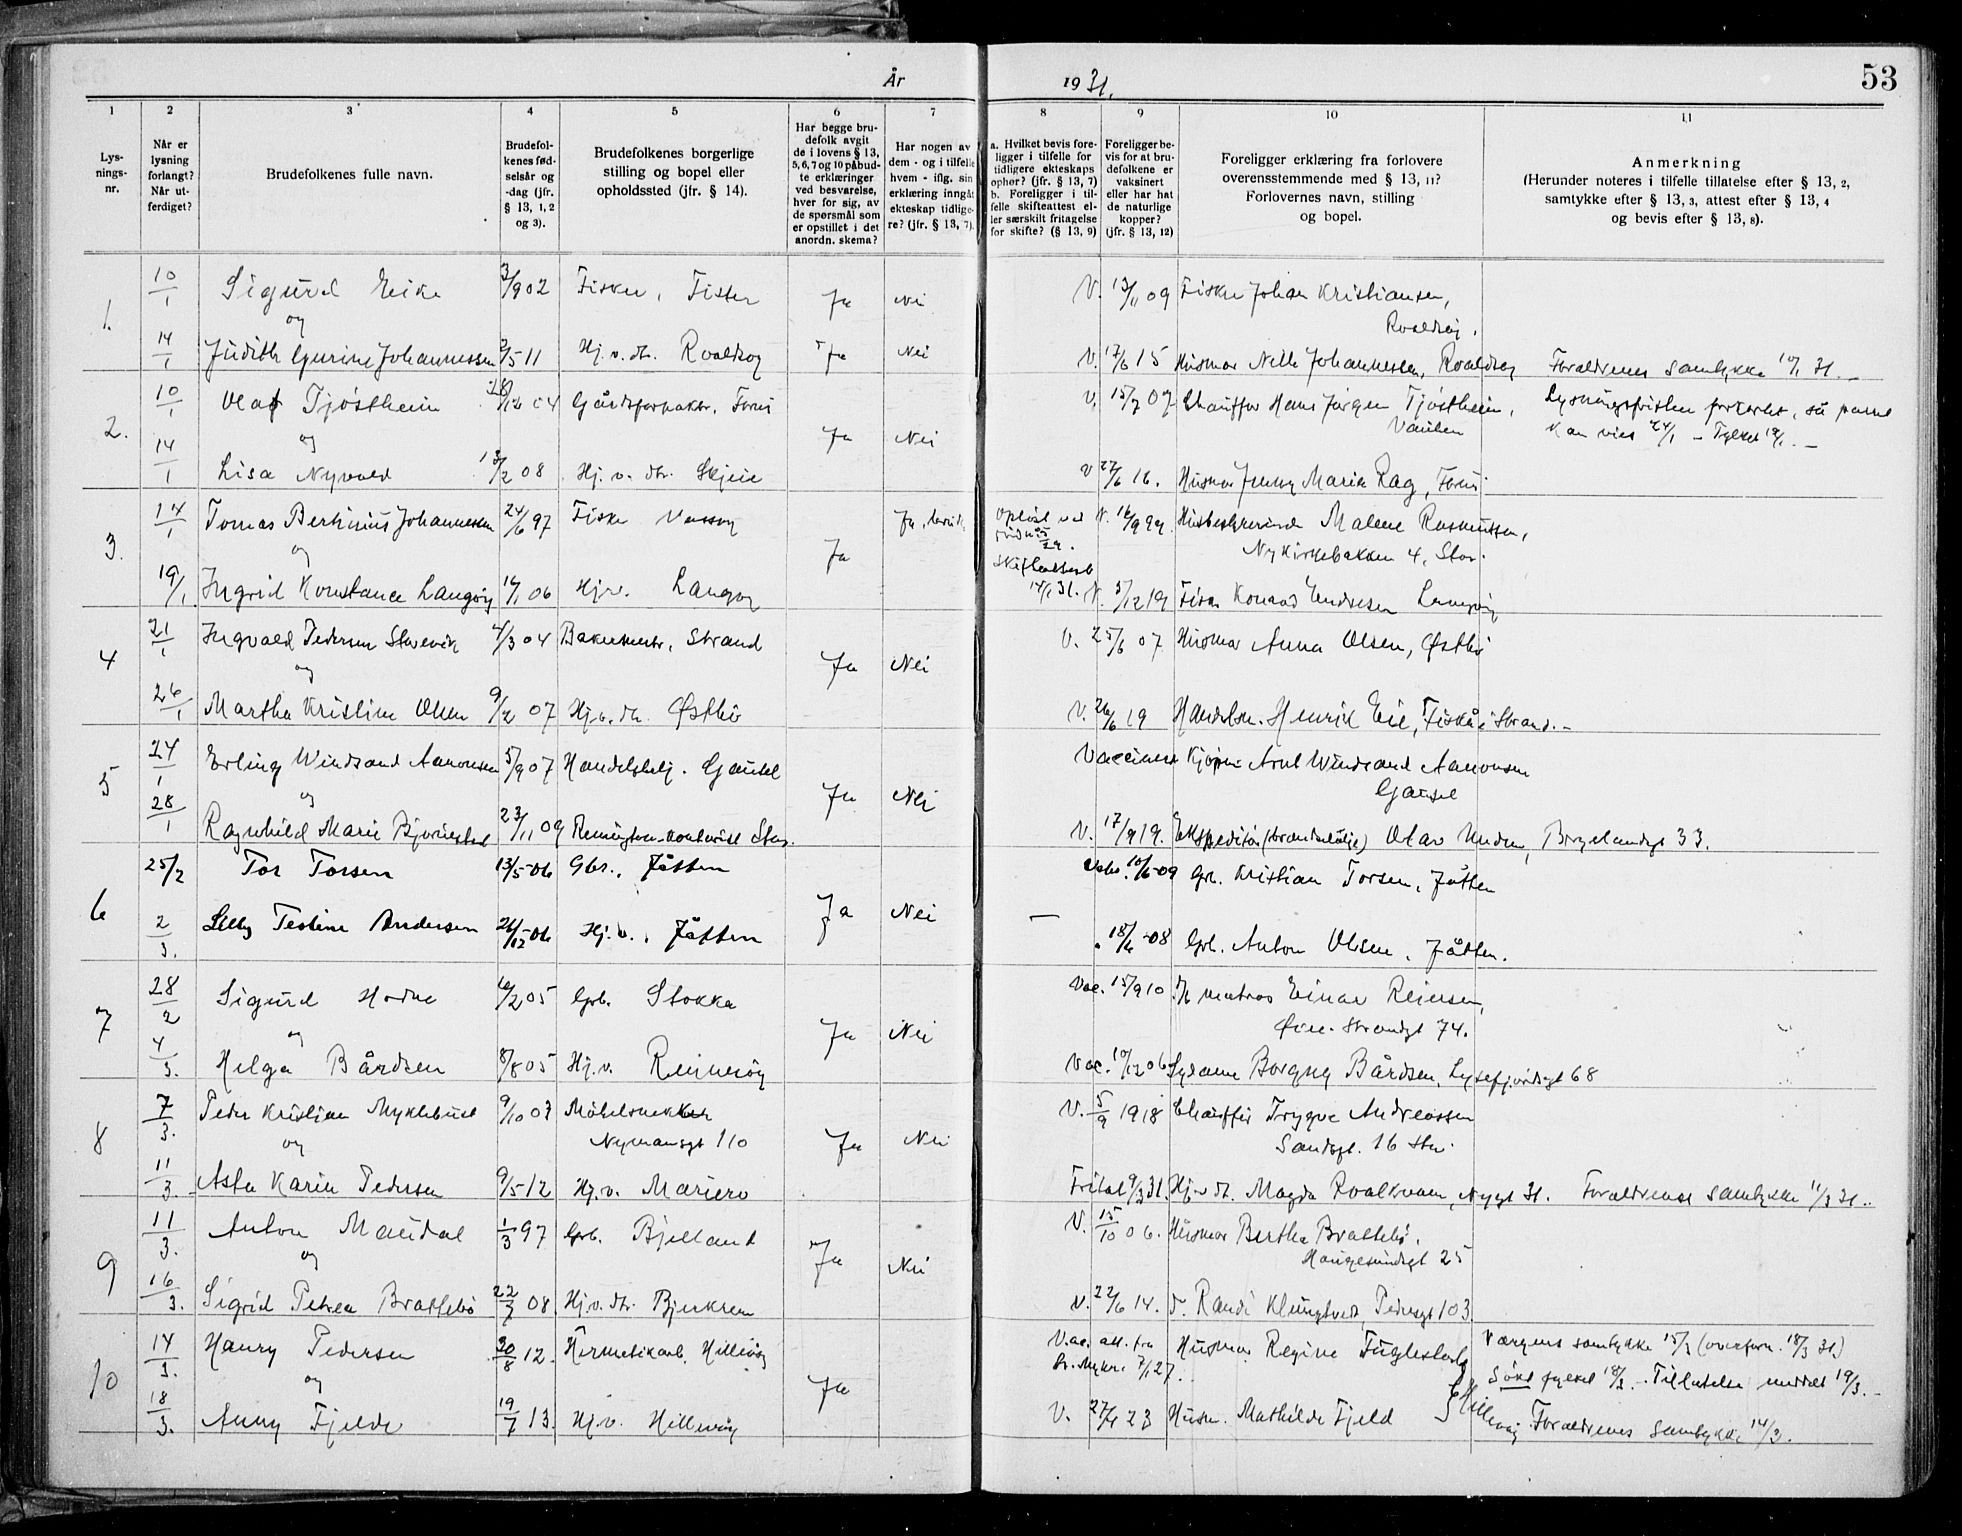 År 1931.
53
1 2 3 4 5 6 7 8 9 10 11
Lysningsnr.
Når er lysning forlangt? Når utferdiget?
Brudefolkenes fulle navn.
Brudefolkenes fødselsår og -dag (jfr. § 13, 1, 2 og 3).
Brudefolkenes borgerlige stilling og bopel eller opholdssted (jfr. § 14).
Har begge brudefolk avgit de i lovens § 13, 5, 6, 7 og 10 påbudte erklæringer ved besvarelse, hver for sig, av de spørsmål som er opstillet i det anordn. skema?
Har nogen av dem - og i tilfelle hvem - iflg. sin erklæring inngått ekteskap tidligere? (jfr. § 13, 7).
a. Hvilket bevis foreligger i tilfelle for tidligere ekteskaps ophør? (jfr. § 13, 7) b. Foreligger i tilfelle skifteattest eller særskilt fritagelse for skifte? (§ 13, 9)
Foreligger bevis for at brudefolkene er vaksinert eller har hat de naturlige kopper? (jfr. § 13, 12)
Foreligger erklæring fra forlovere overensstemmende med § 13, 11? Forlovernes navn, stilling og bopel.
Anmerkning (Herunder noteres i tilfelle tillatelse efter § 13, 2, samtykke efter § 13, 3, attest efter § 13, 4 og bevis efter § 13, 8).
1. 10/1 Sigurd Eike 3/9 02 Fisker, Fister Ja Nei V. 13/11 09 Fisker Johan Kristiansen,
og Roaldsøy.
14/1 Judith Gurine Johannessen 2/5 11 Hj. v. dtr. Roaldsøy Ja Nei V. 17/6 15 Husmor Nelle Johannessen, Roaldsøy Foreldrenes samtykke 10/1 31.
2. 10/1 Olaf Tjøstheim 04 Gårdsforpakter, Forus Ja Nei V. 15/7 07 Chauffør Hans Jørgen Tjøstheim, Lysningsfristen forkortet, så parret
og Vaulen kan vies 24/1 - Fylket
14/1 Lisa Nyvold 13/2 08 Hj. v. dtr. Skjeie V 27/6 16. Husmor Jenny Marie Rag, Forus
3. 14/1 Tomas Bertinius Johannessen 24/6 97 Fisker Vassøy Ja Opløst ved V. Husbestyrerinde Malene Rasmussen,
og Skifteattest Nykirkebakken 4, Stav.
19/1 Ingrid Konstance Langøy 16/1 06 Hj. v. Langøy 14/1 31. V. 5/12 19 Fisker Konrad Endresen Langøy
4 21/1 Ingvald Pedersen 4/3 04 Bakermester, Strand Ja Nei V. 25/6 07 Husmor Anna Olsen, Østbø
og
26/1 Martha Kristine Olsen 9/2 07 Hj. v. dtr. Østbø V. 26/6 19 Handelsm. Henrik Eie, Fiskå i Strand.
5 24/1 Erling Windsand Aanonsen 5/9 07 Handelsbetj. Gausel Ja Nei Vaccinert Kjøpm. Arnt Windsand Aanonsen
og Gausel
28/1 Ragnhild Marie 23/11 09 Remington-kontorist Stav. V. 17/9 19. Ekspeditør Olav Bryelandsgt 33.
6 25/2 Tor Torsen 13/5-06 Gbr., Jåtten Ja Nei 10/6-09 Gbr. Kristian Torsen, Jåtten
2/3. Lilly Testine Andersen 26/12-06 Hj. v., Jåtten — 18/6-08 Gbr. Anton Olsen, Jåtten.
7 28/2 Sigurd Hodne 6/2 05 Gbr. Stokka Ja Nei Vac. 15/9 10 matros Einar Reiersen,
og Øvre Strandgt 74.
4/3. Helga Bårdsen 8/8 05 Hj. v. Rennesøy Vac. 10/12 06 Sydame Borgny Bårdsen, Lysefjordsgt 68
8 7/3. Peder Kristian Myklebust 9/10 03 Møbelsnekker Ja Nei V. 5/9 1918 Chauffør Trygve Andreassen
og Nymansgt 110 Sandsgt. 16 Stv.
11/3 Asta Karin Pedersen 9/5 12 Hj. v. Mariero Fritat 9/3 31. Hj. v. dtr. Magda Roalkvam, Nygt 31. Foreldrenes samtykke 11/3 31.
9 11/3. Anton Maudal 1/3 97 Gbr. Bjelland Ja Nei V. 15/10 06. Husmor Bertha Brattebø,
og Haugesundsgt 25
16/3. Sigrid Petrea Brattebø 22/7 08 Hj. v. dtr. Bjerkrem V. 22/6 14. Randi Pedersgt 103
10 14/3. Henry Pedersen 30/8 12. Hermetikarb. Hillevåg Ja Vac. att. fra Husmor Regine Fuglestad Vergens samtykke 15/3 (overform. 18/3 31)
og 7/1 27. Søkt fylket 18/3. - Tillatelse meddelt 19/3.
18/3. Anny Fjelde 19/7 13. Hj. v. Hillevåg V. 23 Husm. Mathilde Fjeld Hillevåg Foreldrenes samtykke 14/3.